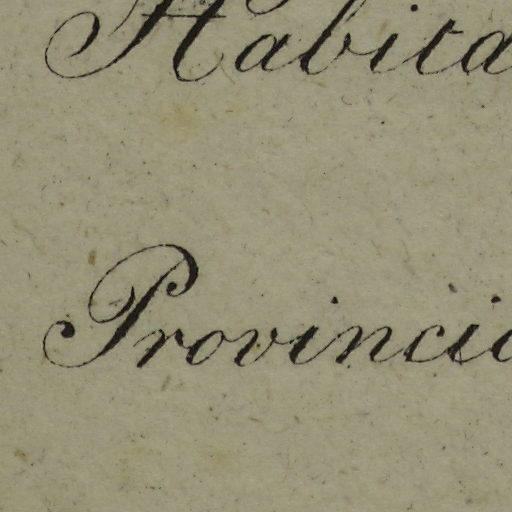 Habita
Provincia